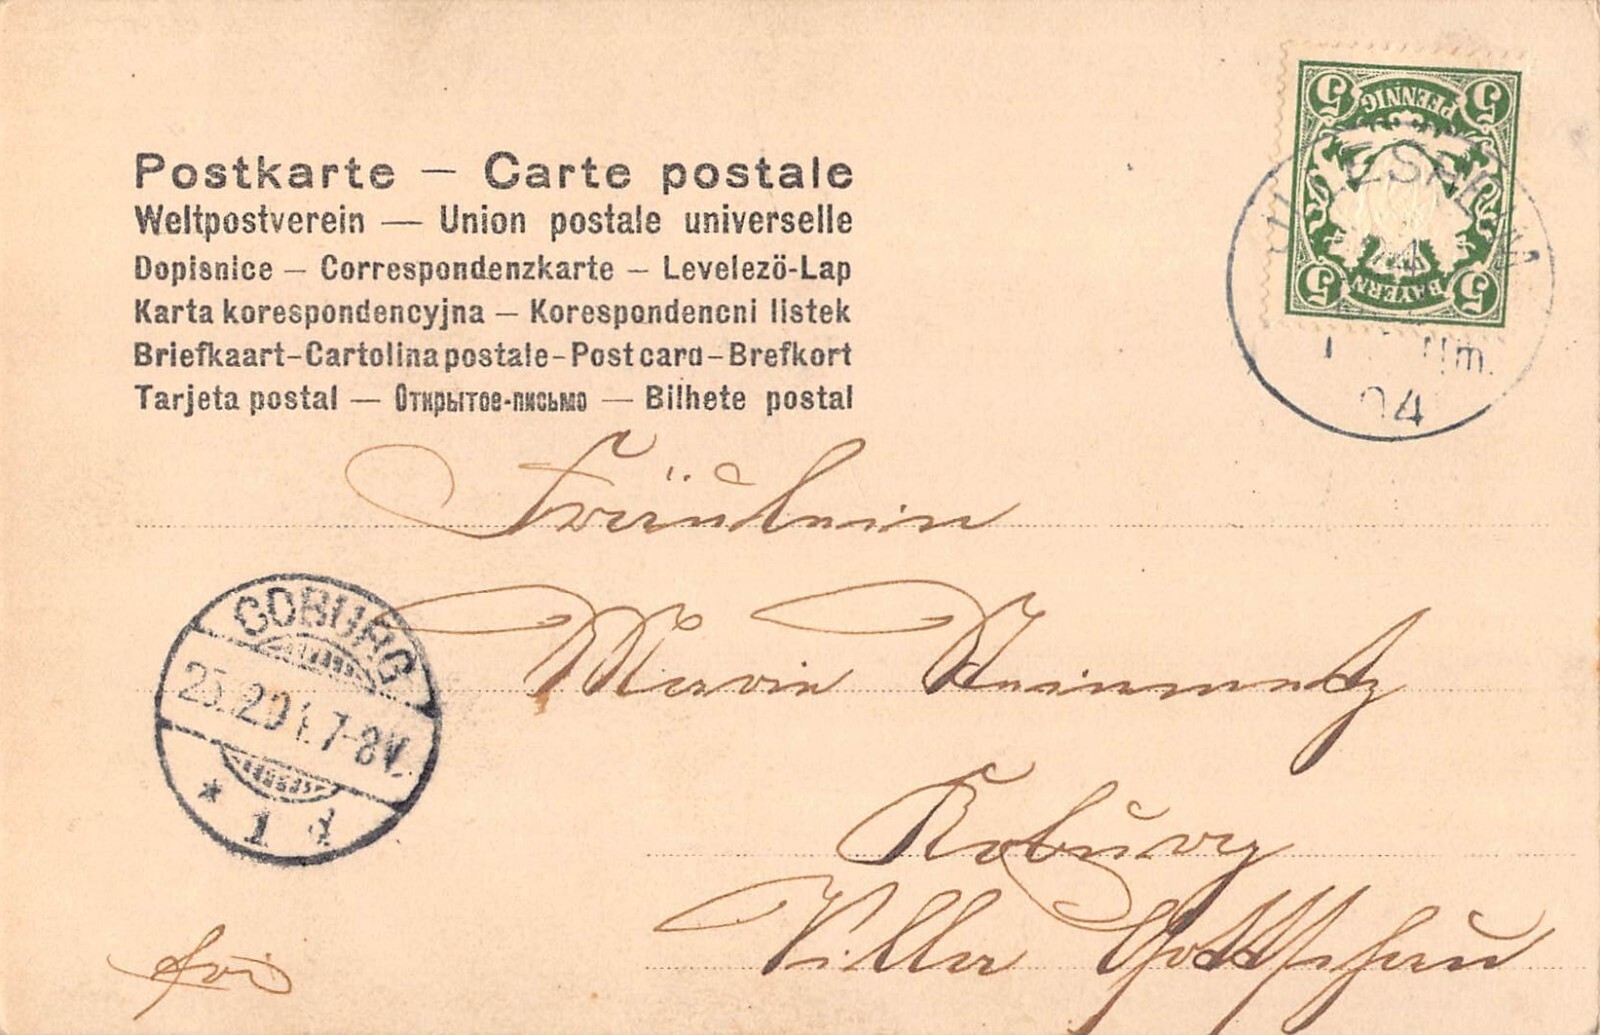 Postkarte — Carte postale
Weltpostverein — Union postale universelle
Dopisnice — Correspondenzkarte — Levelezö-Lap
Karta korespondencyjna — Korespondencni listek
Briefkaart-Cartolina postale-Post card-Brefkort
Tarjeta postal — Открытое-письмо — Bilhete postal
5 PFENNIG 5
5 BAYERN 5
Nm.
04
Fräulein
Marie Steinmetz
Koburg
Villa Gottschau
frei
COBURG
25.2.04.7-8V.
* 1 d